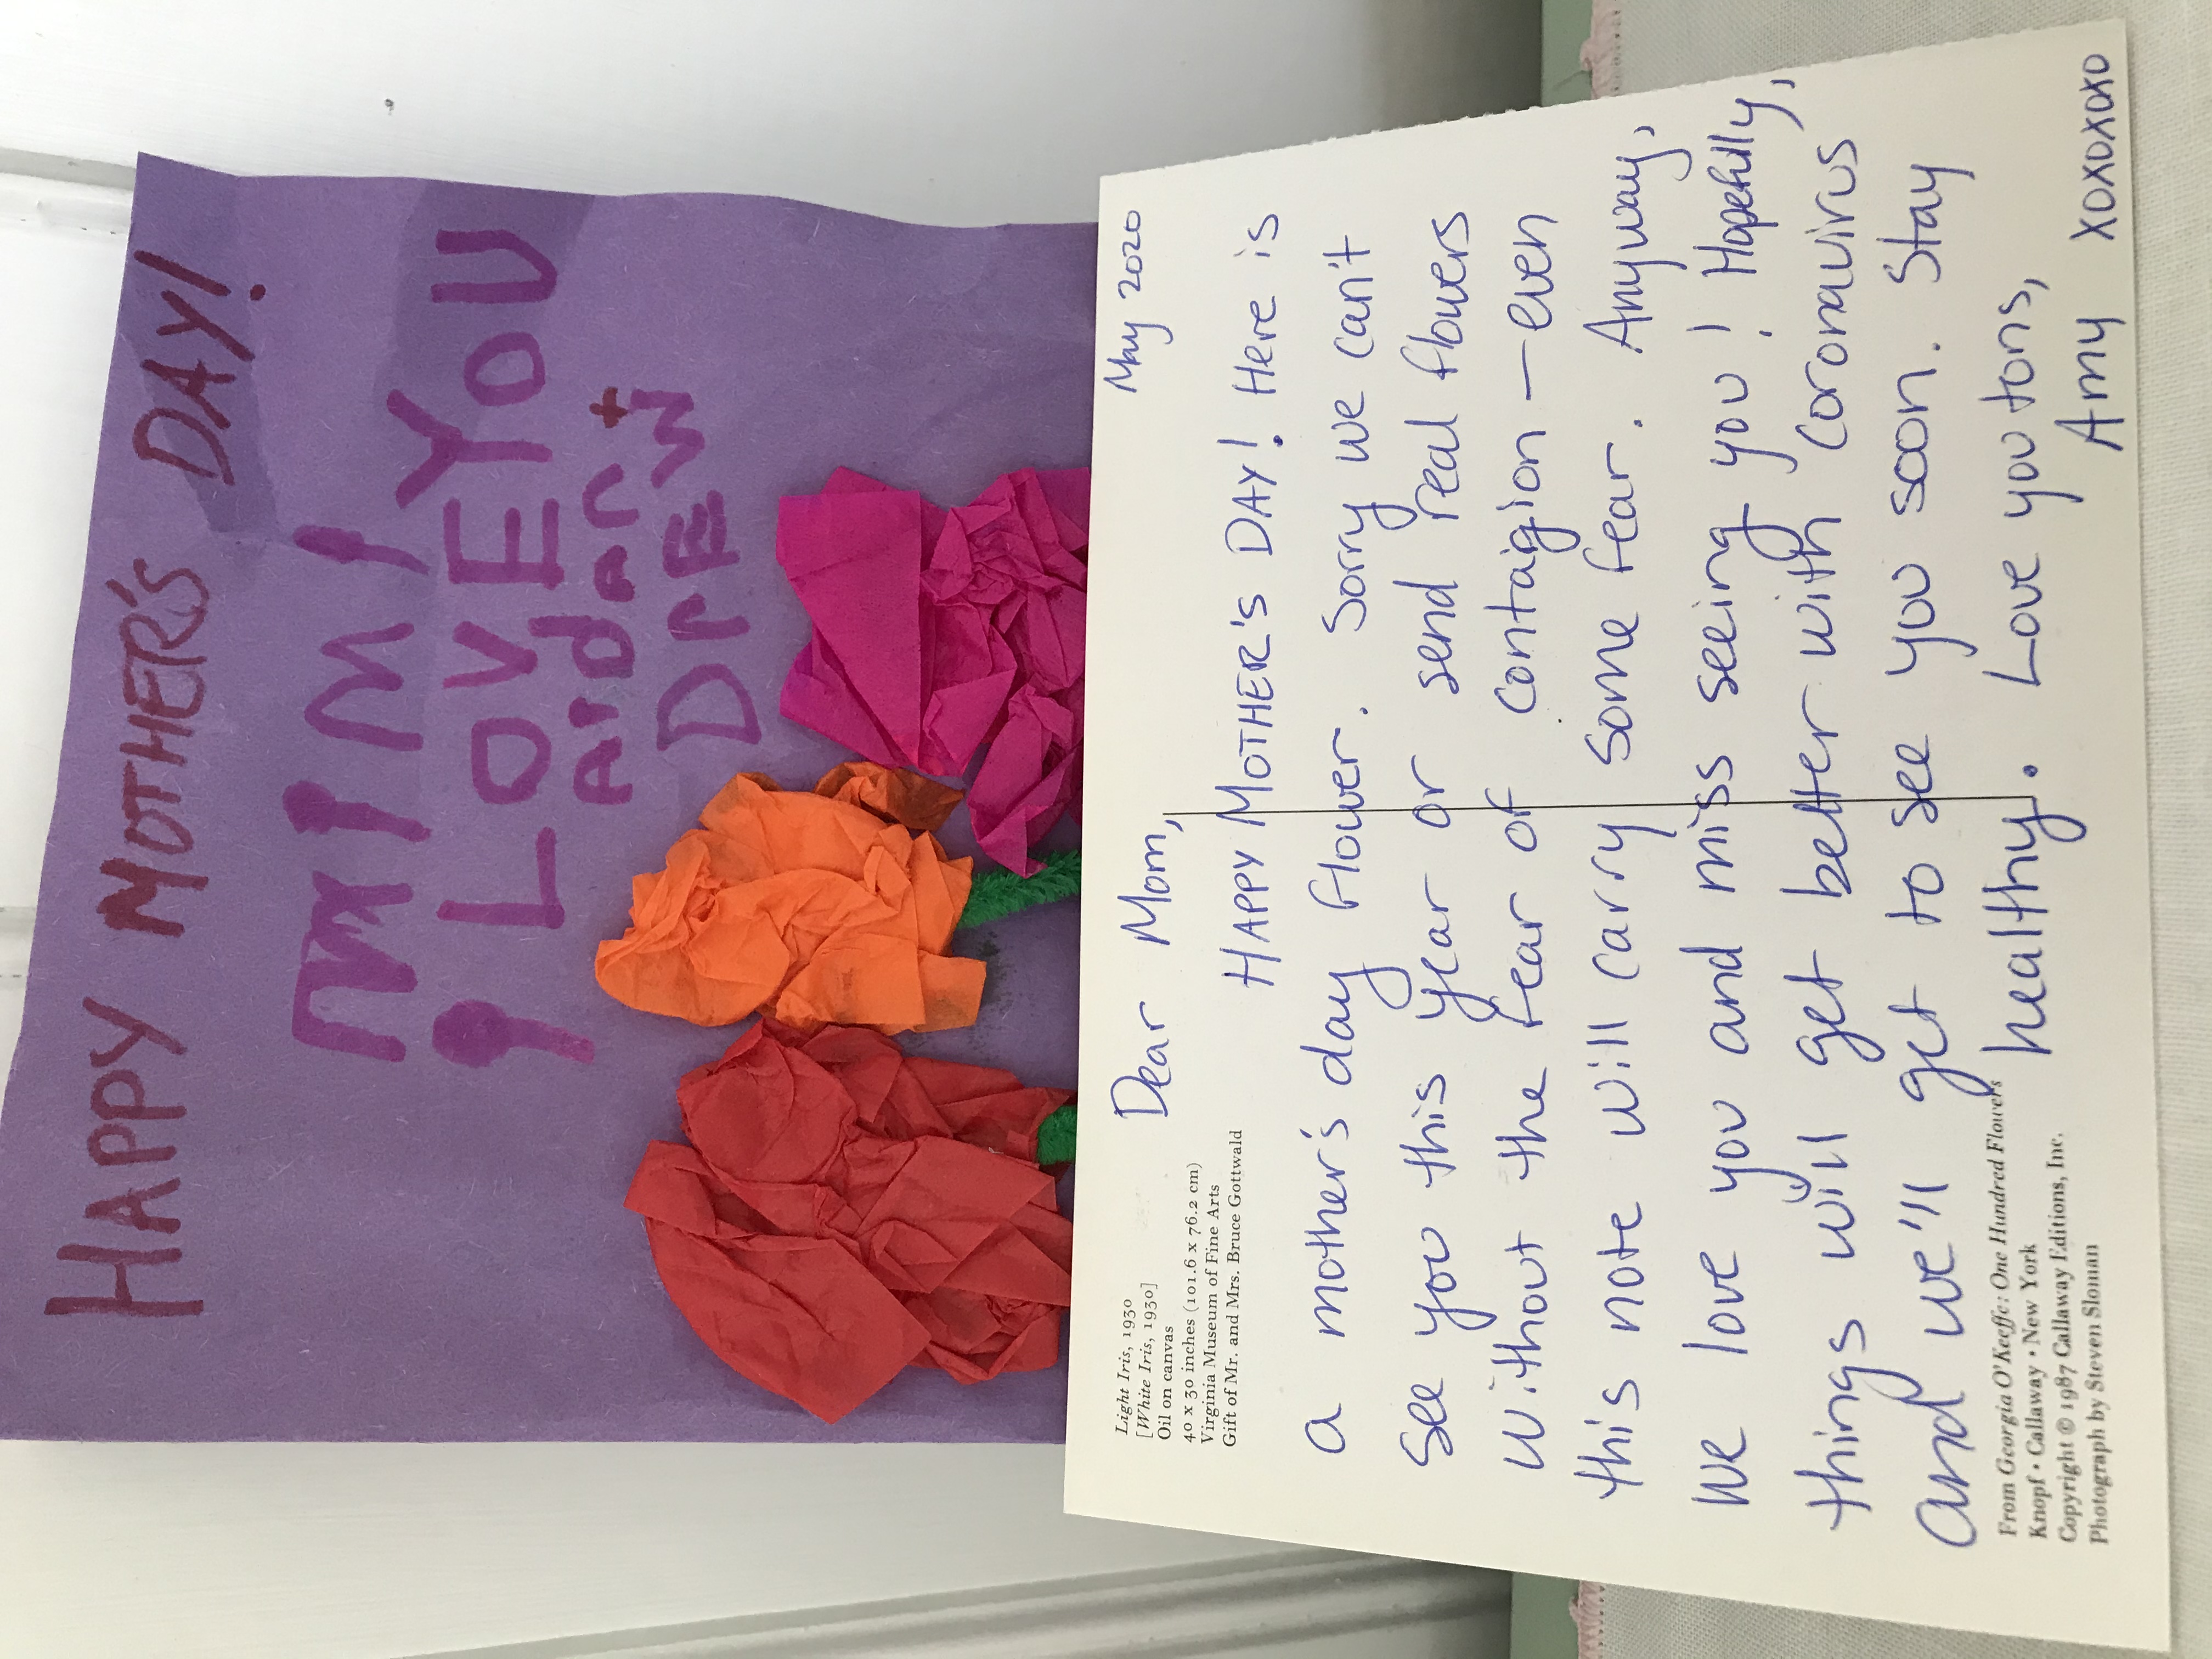 HAPPY MOTHER'S DAY!
mimi
i LOVE YOU
AIDAN +
DrEW
Light Iris, 1930
[White Iris, 1930]
Oil on canvas
40 x 30 inches (101.6 x 76.2 cm)
Virginia Museum of Fine Arts
Gift of Mr. and Mrs. Bruce Gottwald
May 2020
Dear Mom,
HAPPY MOTHER'S DAY! Here is
a mother's day flower. Sorry we can't
see you this year or send real flowers
without the fear of contagion — even
this note will carry some fear. Anyway,
we love you and miss seeing you! Hopefully,
things will get better with Coronavirus
and we'll get to see you soon. Stay
healthy. Love you tons,
Amy XOXOXOXO
From Georgia O'Keeffe: One Hundred Flowers
Knopf • Callaway • New York
Copyright © 1987 Callaway Editions, Inc.
Photograph by Steven Sloman